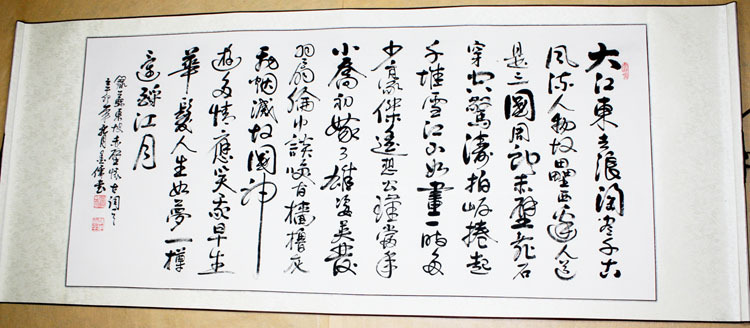 大江東去浪淘盡千古
風流人物故壘西邊人道
是三國周郎赤壁亂石
穿空驚濤拍岸捲起
千堆雪江山如畫一時多
少豪傑遙想公瑾當年
小喬初嫁了雄姿英發
羽扇綸巾談笑間檣櫓灰
飛烟滅故國神
遊多情應笑我早生
華髮人生如夢一樽
還酹江月
錄蘇東坡赤壁懷古詞
辛卯年月偉書